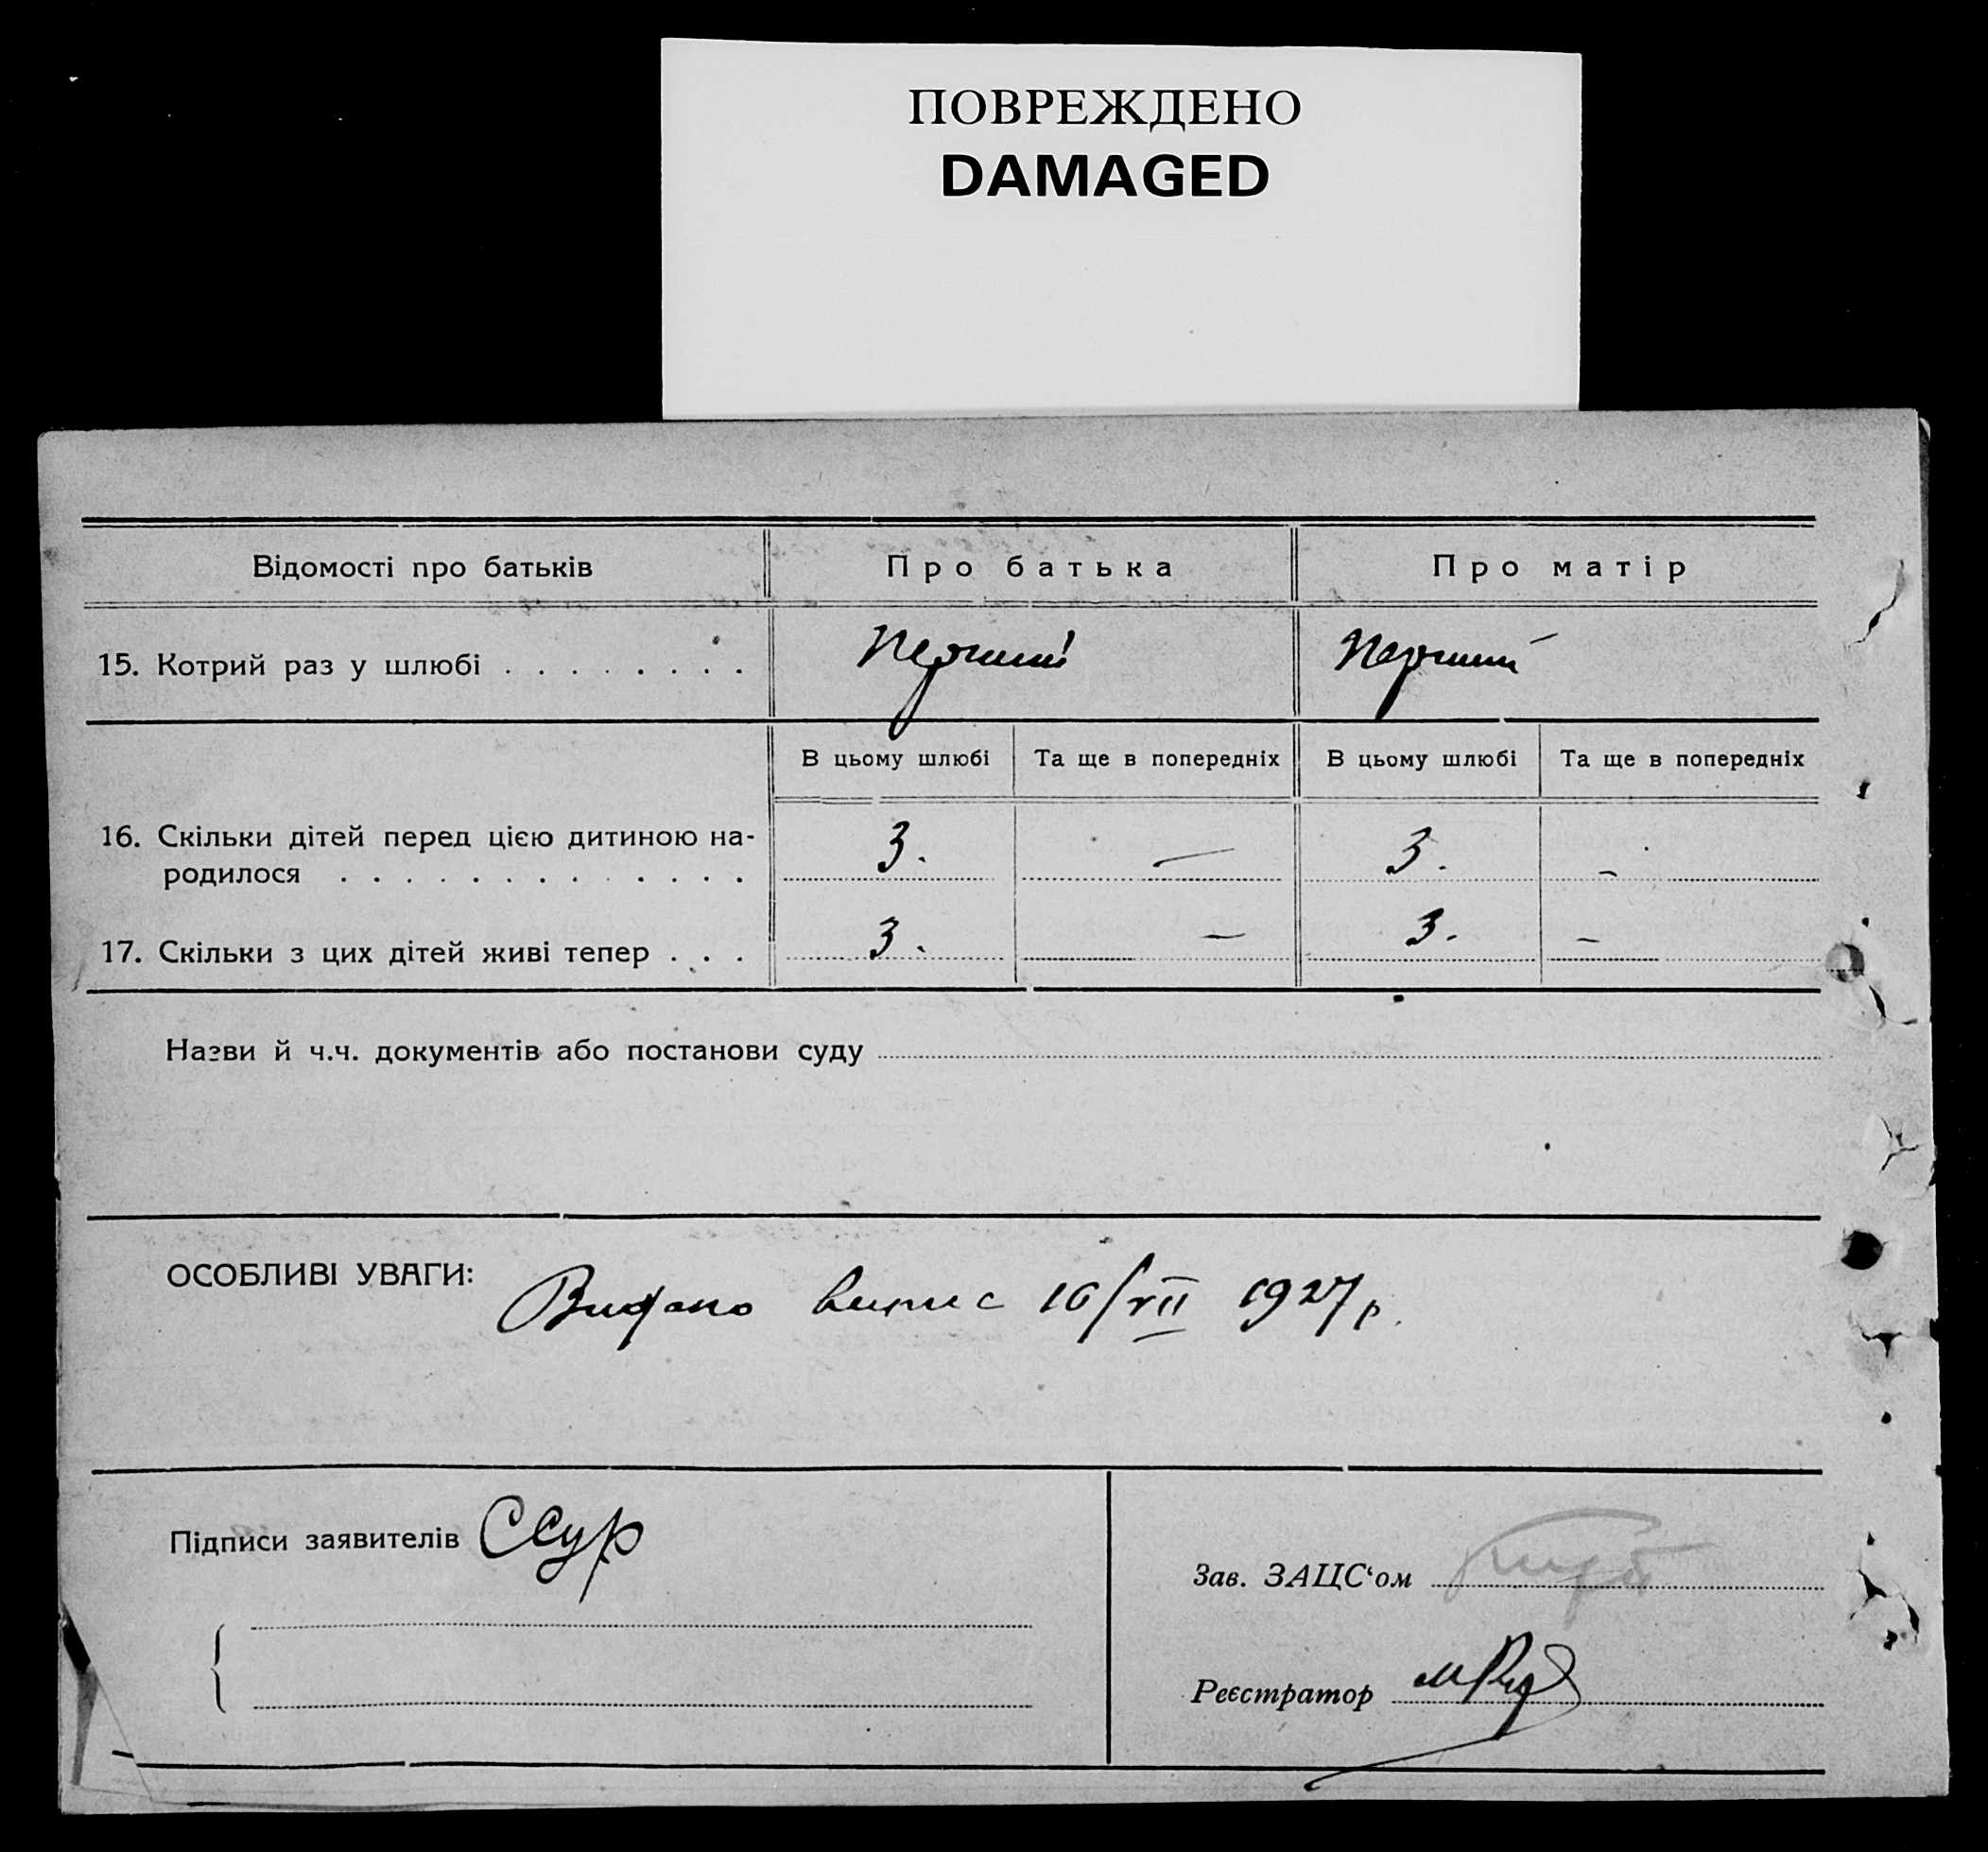 ПОВРЕЖДЕНО
DAMAGED
Відомості про батьків Про батька Про матір
15. Котрий раз у шлюбі . . . . . . . . Перший Перший
В цьому шлюбі Та ще в попередніх В цьому шлюбі Та ще в попередніх
16. Скільки дітей перед цією дитиною на-
родилося . . . . . . . . . . . . . 3. — 3. –
17. Скільки з цих дітей живі тепер . . . 3. — 3. –
Назви й ч.ч. документів або постанови суду
ОСОБЛИВІ УВАГИ:
Видано випис 16/VII 1927 р.
Підписи заявителів
Зав. ЗАЦС‘ом
Реєстратор